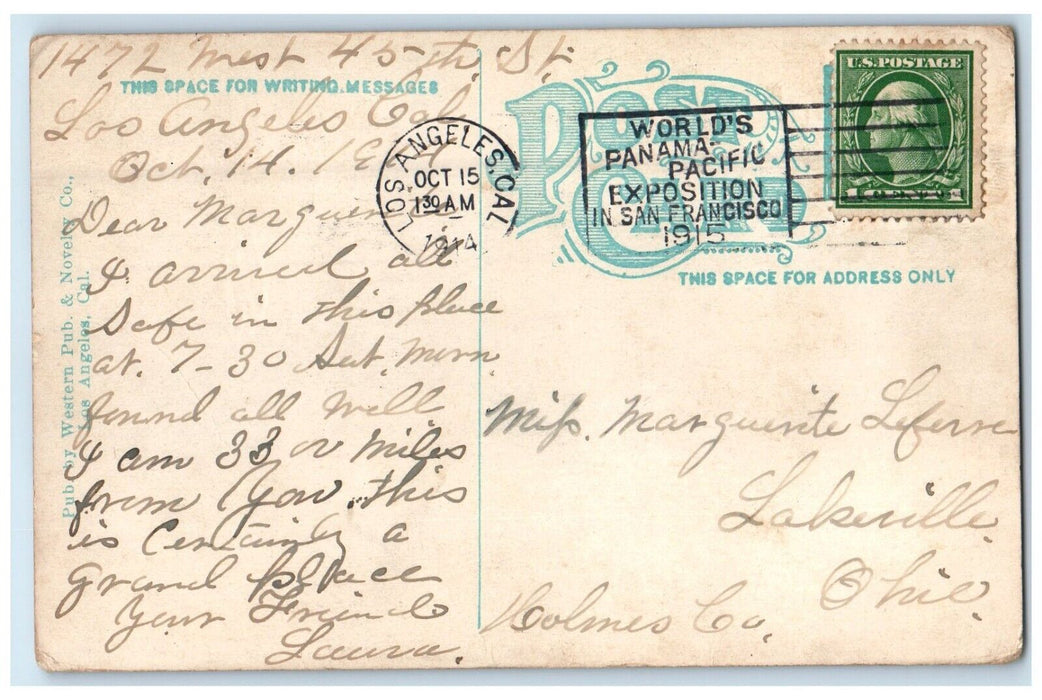 1472 West 45th. St.
THIS SPACE FOR WRITING MESSAGES
Los Angeles Cal
Oct. 14. 1914
Dear Marguerite
I arrived all
Safe in this place
at. 7-30 Sat. Morn
found all well
I am 33 00 miles
from you. This
is Certainly a
grand place
Your Friend
Laura.
Pub. by Western Pub. & Novelty Co.,
Los Angeles, Cal.
POST CARD
LOS ANGELES, CAL
OCT 15
1 30 AM
1914
WORLD'S
PANAMA-
PACIFIC
EXPOSITION
IN SAN FRANCISCO
1915
U.S. POSTAGE
1 CENT 1
THIS SPACE FOR ADDRESS ONLY
Miss. Marguerite Lefevre
Lakeville
Ohio.
Holmes Co.